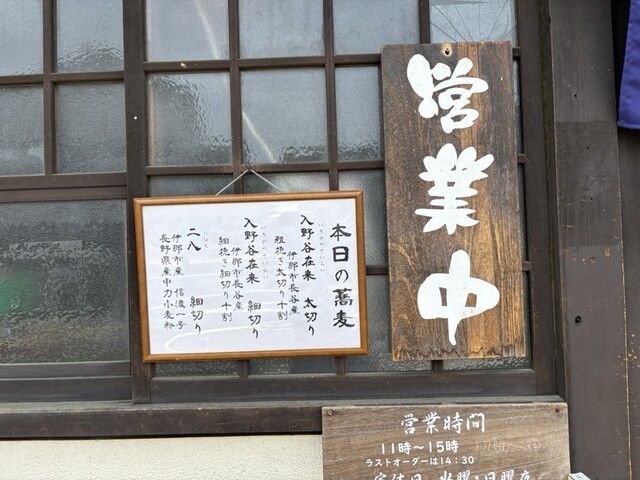 営業中
本日の蕎麦
入野谷在来 太切り
伊那市長谷産
粗挽き太切り十割
入野谷在来 細切り
伊那市長谷産
細挽き細切り十割
二八 細切り
伊那市産 信濃一号
長野県産中力小麦粉
営業時間
11時〜15時
ラストオーダーは14:30
定休日 水曜・日曜夜